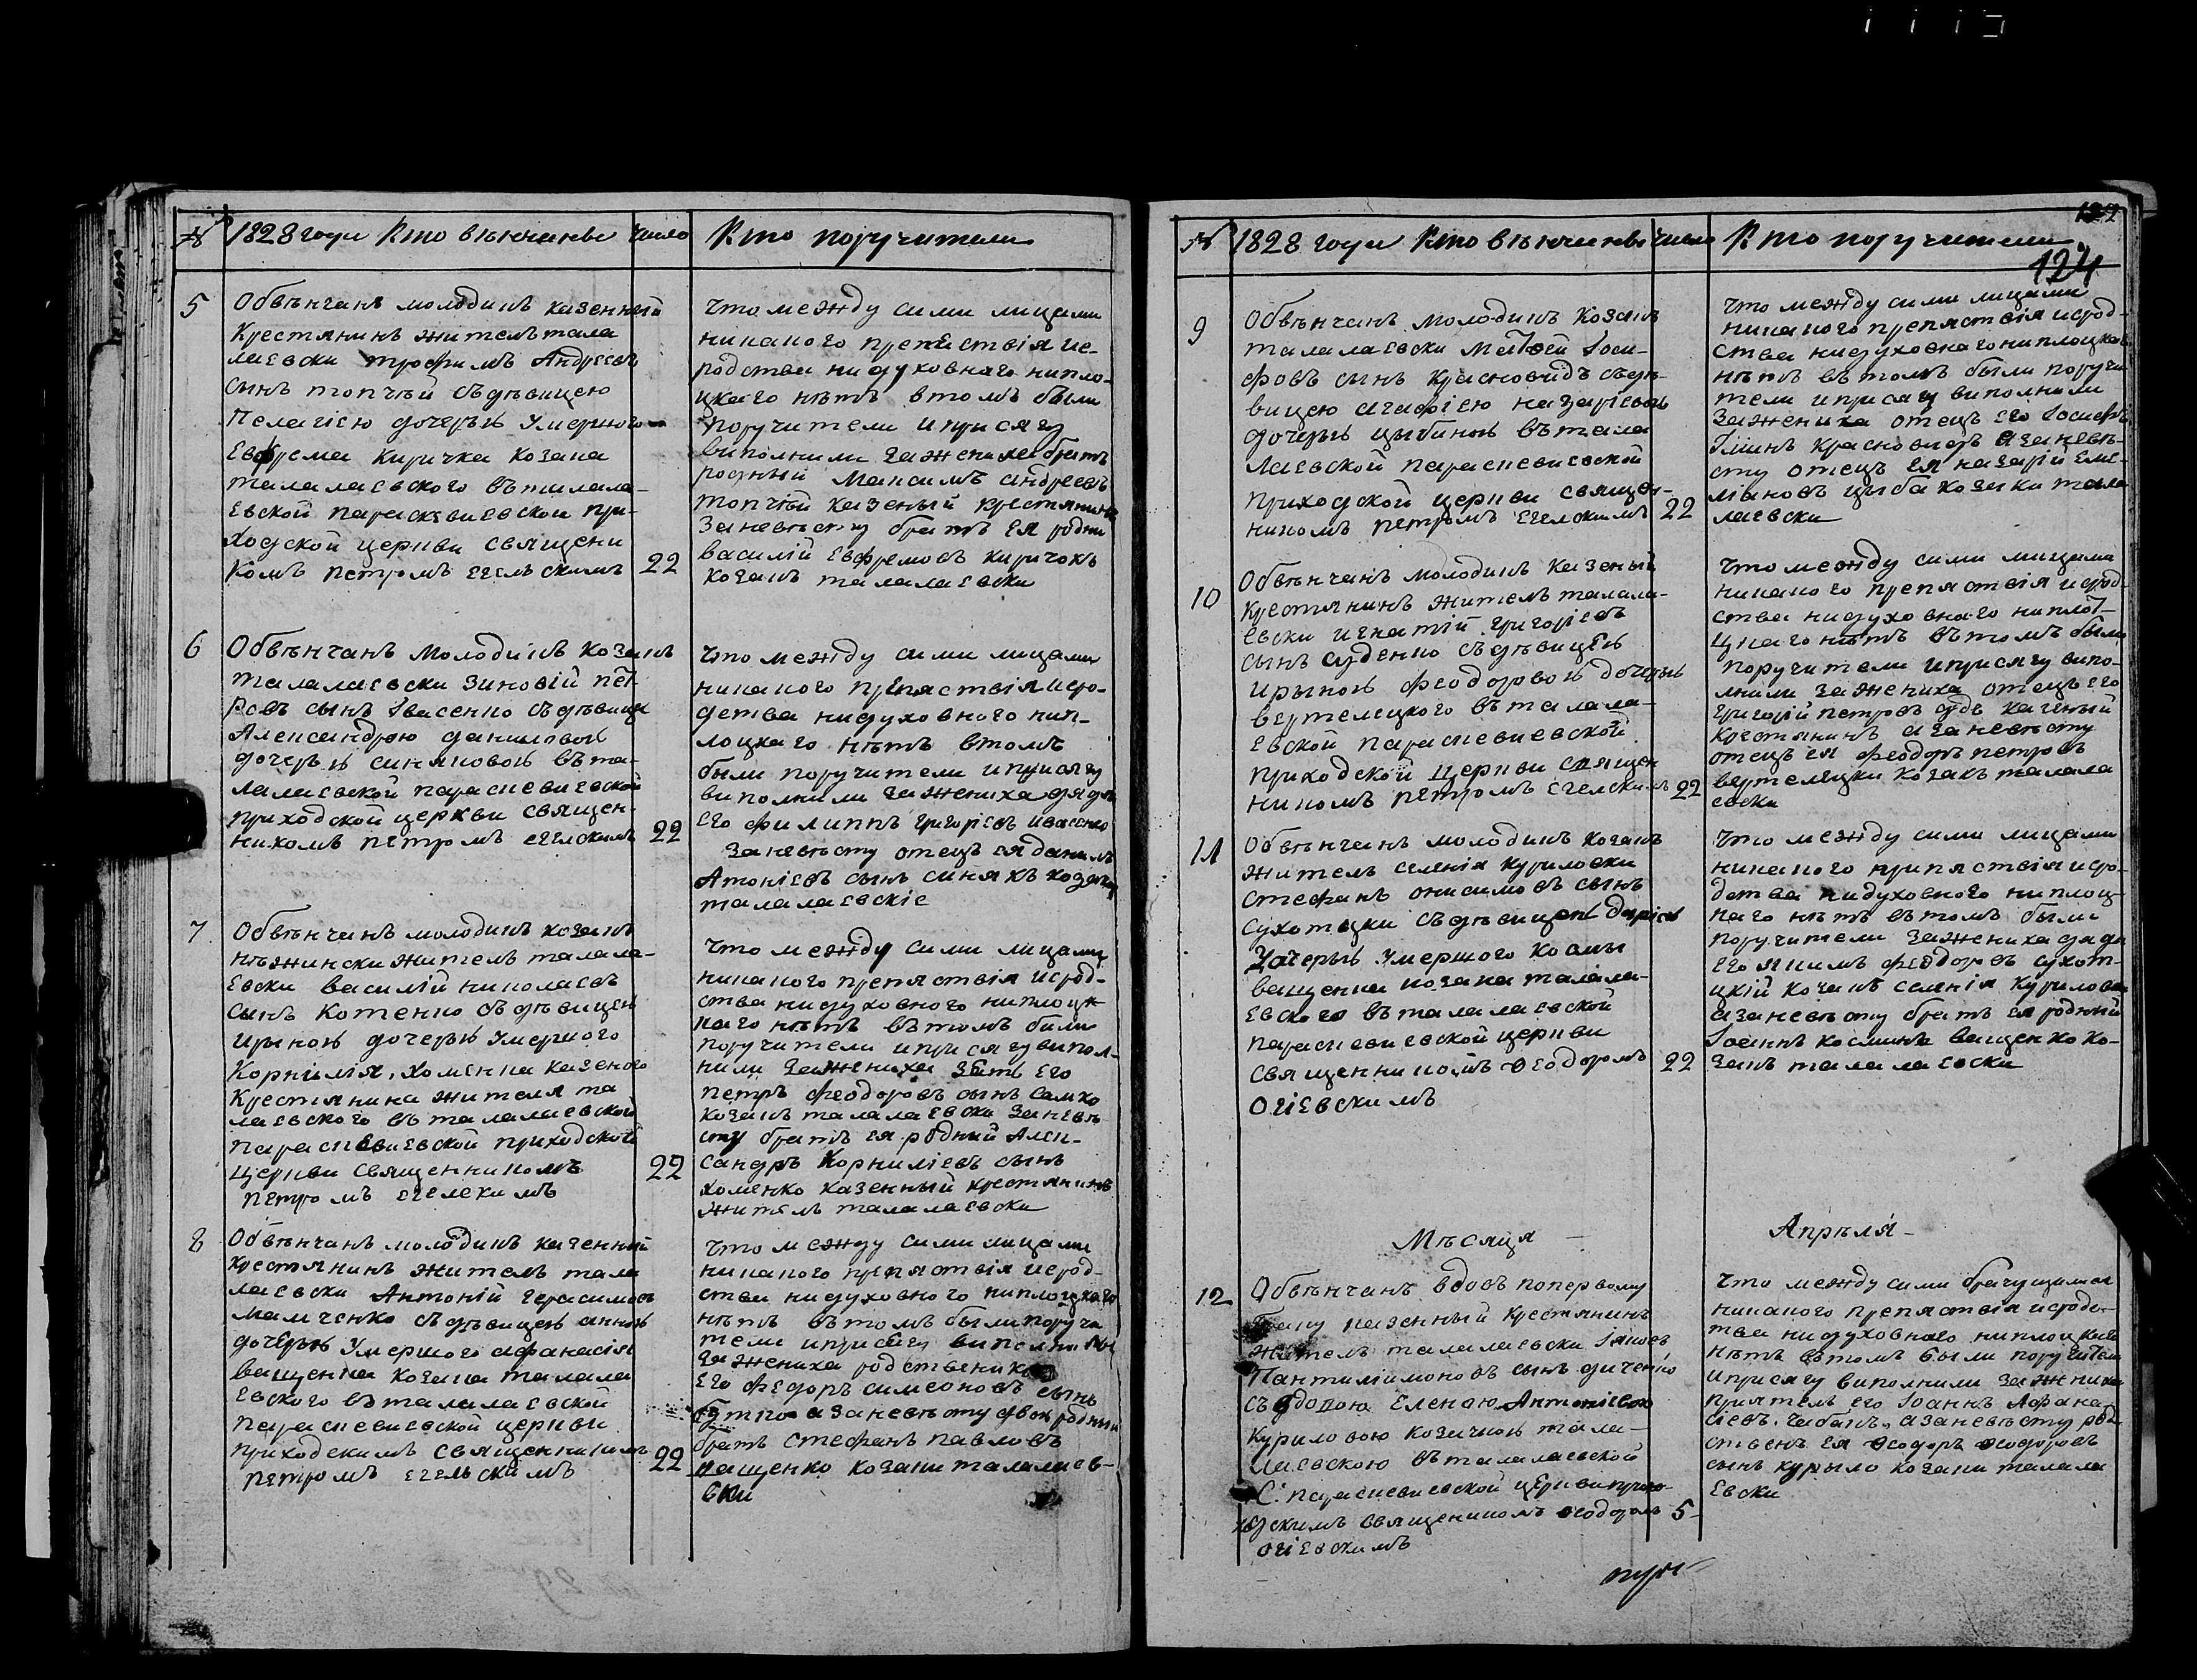 № 1828 года Кто венчаны число Кто поручители
5
Обвѣнчанъ молодикъ казенный
Крестянинъ жителъ тала
лаевски трофимъ Андреевъ
сынъ топчій съдѣвицею
Пелагією дочерью Умершого
Евфрема Киричка Козака
талалаевского въталала-
Евской параскевиевской при-
ходской церкви священи
комъ петромъ егельскимъ 22
что между сими лицами
никакого препятствія ие-
родства нидуховного нипло-
цкаго нѣтъ втомъ были
поручители иприсягу
виполнили зажениха братъ
родный Максимъ андреевъ
топчій казеный крестянинъ
Заневѣсту братъ ея родни
василій Евфремовъ киричокъ
козакъ талалаевски
6
Обвѣнчанъ молодикъ козакъ
талалаевски зиновій пет-
ровъ сынъ Івасенко съдѣвице
Александрою даниловою
дочерью синяковою вѣта-
лалаевской параскевиевской
приходской церкви священ-
никомъ петромъ егелскимъ 22
что между сими лицами
никакого препяствія иро-
дства нидуховного нип-
лоцкаго нѣтъ втомъ
были поручители иприсягу
виполнили зажениха дядя
его филиппъ григоріевъ ивасенко
заневѣсту отецъ ея данилъ
Атоніевъ сынъ синякъ козаки
талалаевскіе
7
Обвѣнчанъ молодикъ козакъ
нѣжински жителъ талала-
Евски василій николаевъ
сынъ Котенко съдѣвицею
Ириною дочерью умершого
Корнилія хоменка казеного
Крестянина жителя та
лаевского въталалаевской
параскевиевской приходской
церкви священникомъ 22
петромъ егелскимъ
что между сими лицами
никакого препятствія ирод-
ства нидуховного ниплоцк
каго нѣтъ въ томъ били
поручители иприсягувипол-
нили зажениха зять его
петръ феодоровъ сынъ Самко
козакъ талалаевски заневѣ
сту братъ ея родний Алек-
сандръ Корниліевъ сынъ
хоменко казенный крестянинъ
житель талалаевски
8
Обвѣнчанъ молодикъ казенный
крестянинъ жителъ тала
лаевски Антоній герасимовъ
мамченко съдѣвицею анною
дочерью умершого афанасія
ващенка козака талала
евского въталалаевской
параскевиевской церкви
приходскимъ священникомъ 22
петромъ егельскимъ
что между сими лицами
никакого препятствія ирод-
ства нидуховного ниплоцкаго
нѣтъ въ томъ были поручи
тели иприсягу виполнили
зажениха родственикъ
его федоръ симеоновъ сынъ
азаневѣсту двоюродный
братъ стефанъ павловъ
ващенко козаки талалаев-
ски
122
124
№ 1828 года Кто венчаны число Кто поручители
9
Обвѣнчанъ молодикъ козакъ
талалаевски Матвей Іоси-
фовъ сынъ красновидъ съдѣ-
вицею агафією назаріевою
дочерью цыбиною въ тала
лаевской параскевиевской
приходской церкви священ-
никомъ петромъ егелскимъ 22
что между сими лицами
никакого препятствія ирод-
ства нидуховнаго ниплоцкаго
нѣтъ въ томъ были поручи
тели иприсягу виполнили
зажениха отецъ его Іосифъ
красновидъ азаневѣ-
сту отецъ ея назарій Еме-
ліановъ цыба козаки тала
лаевски
10
Обвѣнчанъ молодикъ казеный
крестянинъ жителъ талала-
Евски игнатій григоріевъ
сынъ суденко съдѣвицею
ириною феодоровою дочерью
вертелецкого въталала-
Евской параскевиевской
приходской церкви священ
никомъ петромъ егелскимъ 22
что между сими лицами
никакого препятствія ирод-
ства нидуховнаго ниплот-
цкаго нѣтъ въ томъ были
поручители иприсягу випо-
лнили зажениха отецъ его
григорій петровъ казеный
крестянинъ азаневѣсту
отецъ ея феодоръ петровъ
вертелецки козакъ талала
евски
11
Обвѣнчанъ молодикъ козакъ
жителъ селенія куриловки
стефанъ онисимовъ сынъ
сухотцки съдѣвицею дарією
дочерью умершого козмы
ващенка козака талала-
Евского въталалаевской
параскевиевской церкви
священникомъ Феодоромъ 22
огіевскимъ
что между сими лицами
никакого припятствія иро-
дства нидуховного ниплоц-
каго нѣтъ въ томъ были
поручители зажениха дядя
его якимъ феодоровъ сухот-
цкій козакъ селенія куриловки
азаневѣсту братъ ея родний
Іоаннъ косминъ ващенко ко-
закъ талалаевски
Мѣсяця Апрѣля
12
Обвѣнчанъ вдовъ поперв ому
браку казенный крестянинъ
жителъ талалаевски Іяковъ
Пантиліимоновъ сынъ диченко
съ вдовою Еленою Антоніевою
куриловою козачкою тала-
лаевскою въталалаевской
С: параскевиевской церкви прихо-
хдскимъ священикомъ Феодоромъ 5
огіевскимъ
что между сими брачущимися
никакого препятствія иродс-
тва нидуховного ниплоцкаго
нѣтъ въ томъ были поручители
иприсягу виполнили зажениха
приятель его Іоаннъ Афана-
сіевъ чабанъ азаневѣсту род-
ственъ ея Феодоръ Феодоровъ
сынъ курыло козаки талала
Евски